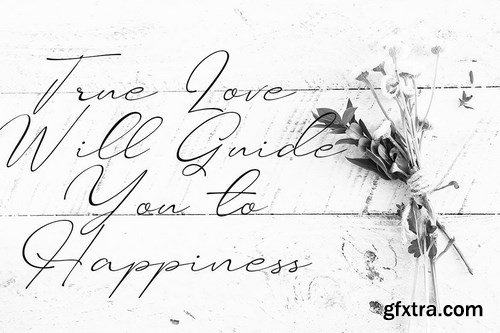 True Love
Will Guide
You to
Happiness
gfxtra.com